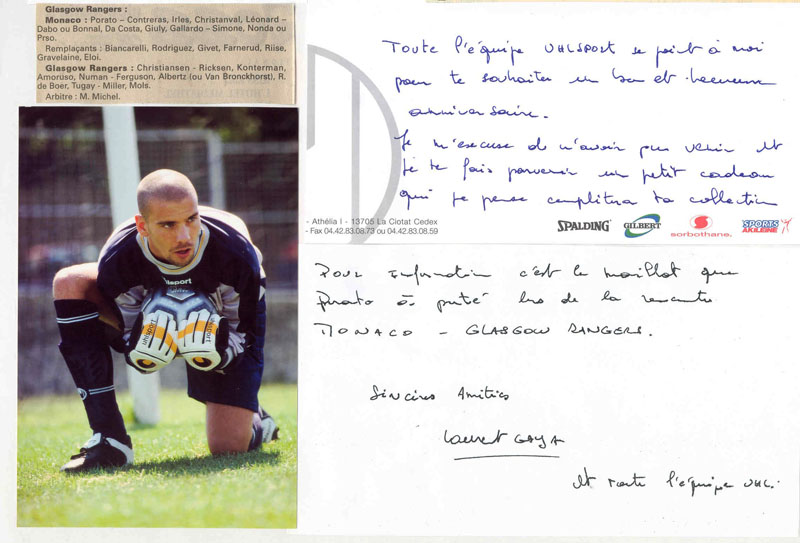 Glasgow Rangers :
Monaco : Porato - Contreras, Irles, Christanval, Léonard -
Dabo ou Bonnal, Da Costa, Giuly, Gallardo - Simone, Nonda ou
Prso.
Remplaçants : Biancarelli, Rodriguez, Givet, Farnerud, Riise,
Gravelaine, Eloi.
Glasgow Rangers : Christiansen - Ricksen, Konterman,
Amoruso, Numan - Ferguson, Albertz (ou Van Bronckhorst), R.
de Boer, Tugay - Miller, Mols.
Arbitre : M. Michel.
Toute l'équipe UHLSPORT se joint à moi
pour te souhaiter un bon et heureux
anniversaire.
Je m'excuse de n'avoir pu venir et
je te fais parvenir un petit cadeau
qui je pense complètera ta collection
- Athélia I - 13705 La Ciotat Cedex
- Fax 04.42.83.08.73 ou 04.42.83.08.59
SPALDING
GILBERT
sorbothane.
SPORTS
AKILEINE
Pour information c'est le maillot que
Porato a porté lors de la rencontre
MONACO - GLASGOW RANGERS.
Sincères Amitiés
Laurent GAYA
et toute l'équipe UHL.
uhlsport
uhlsport